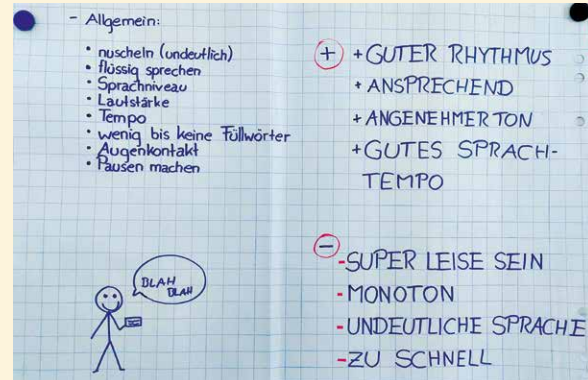 - Allgemein:
• nuscheln (undeutlich)
• flüssig sprechen
• Sprachniveau
• Lautstärke
• Tempo
• wenig bis keine Füllwörter
• Augenkontakt
• Pausen machen
BLAH
BLAH
+ + GUTER RHYTHMUS
+ ANSPRECHEND
+ ANGENEHMER TON
+ GUTES SPRACH-
TEMPO
-
- SUPER LEISE SEIN
- MONOTON
- UNDEUTLICHE SPRACHE
- ZU SCHNELL